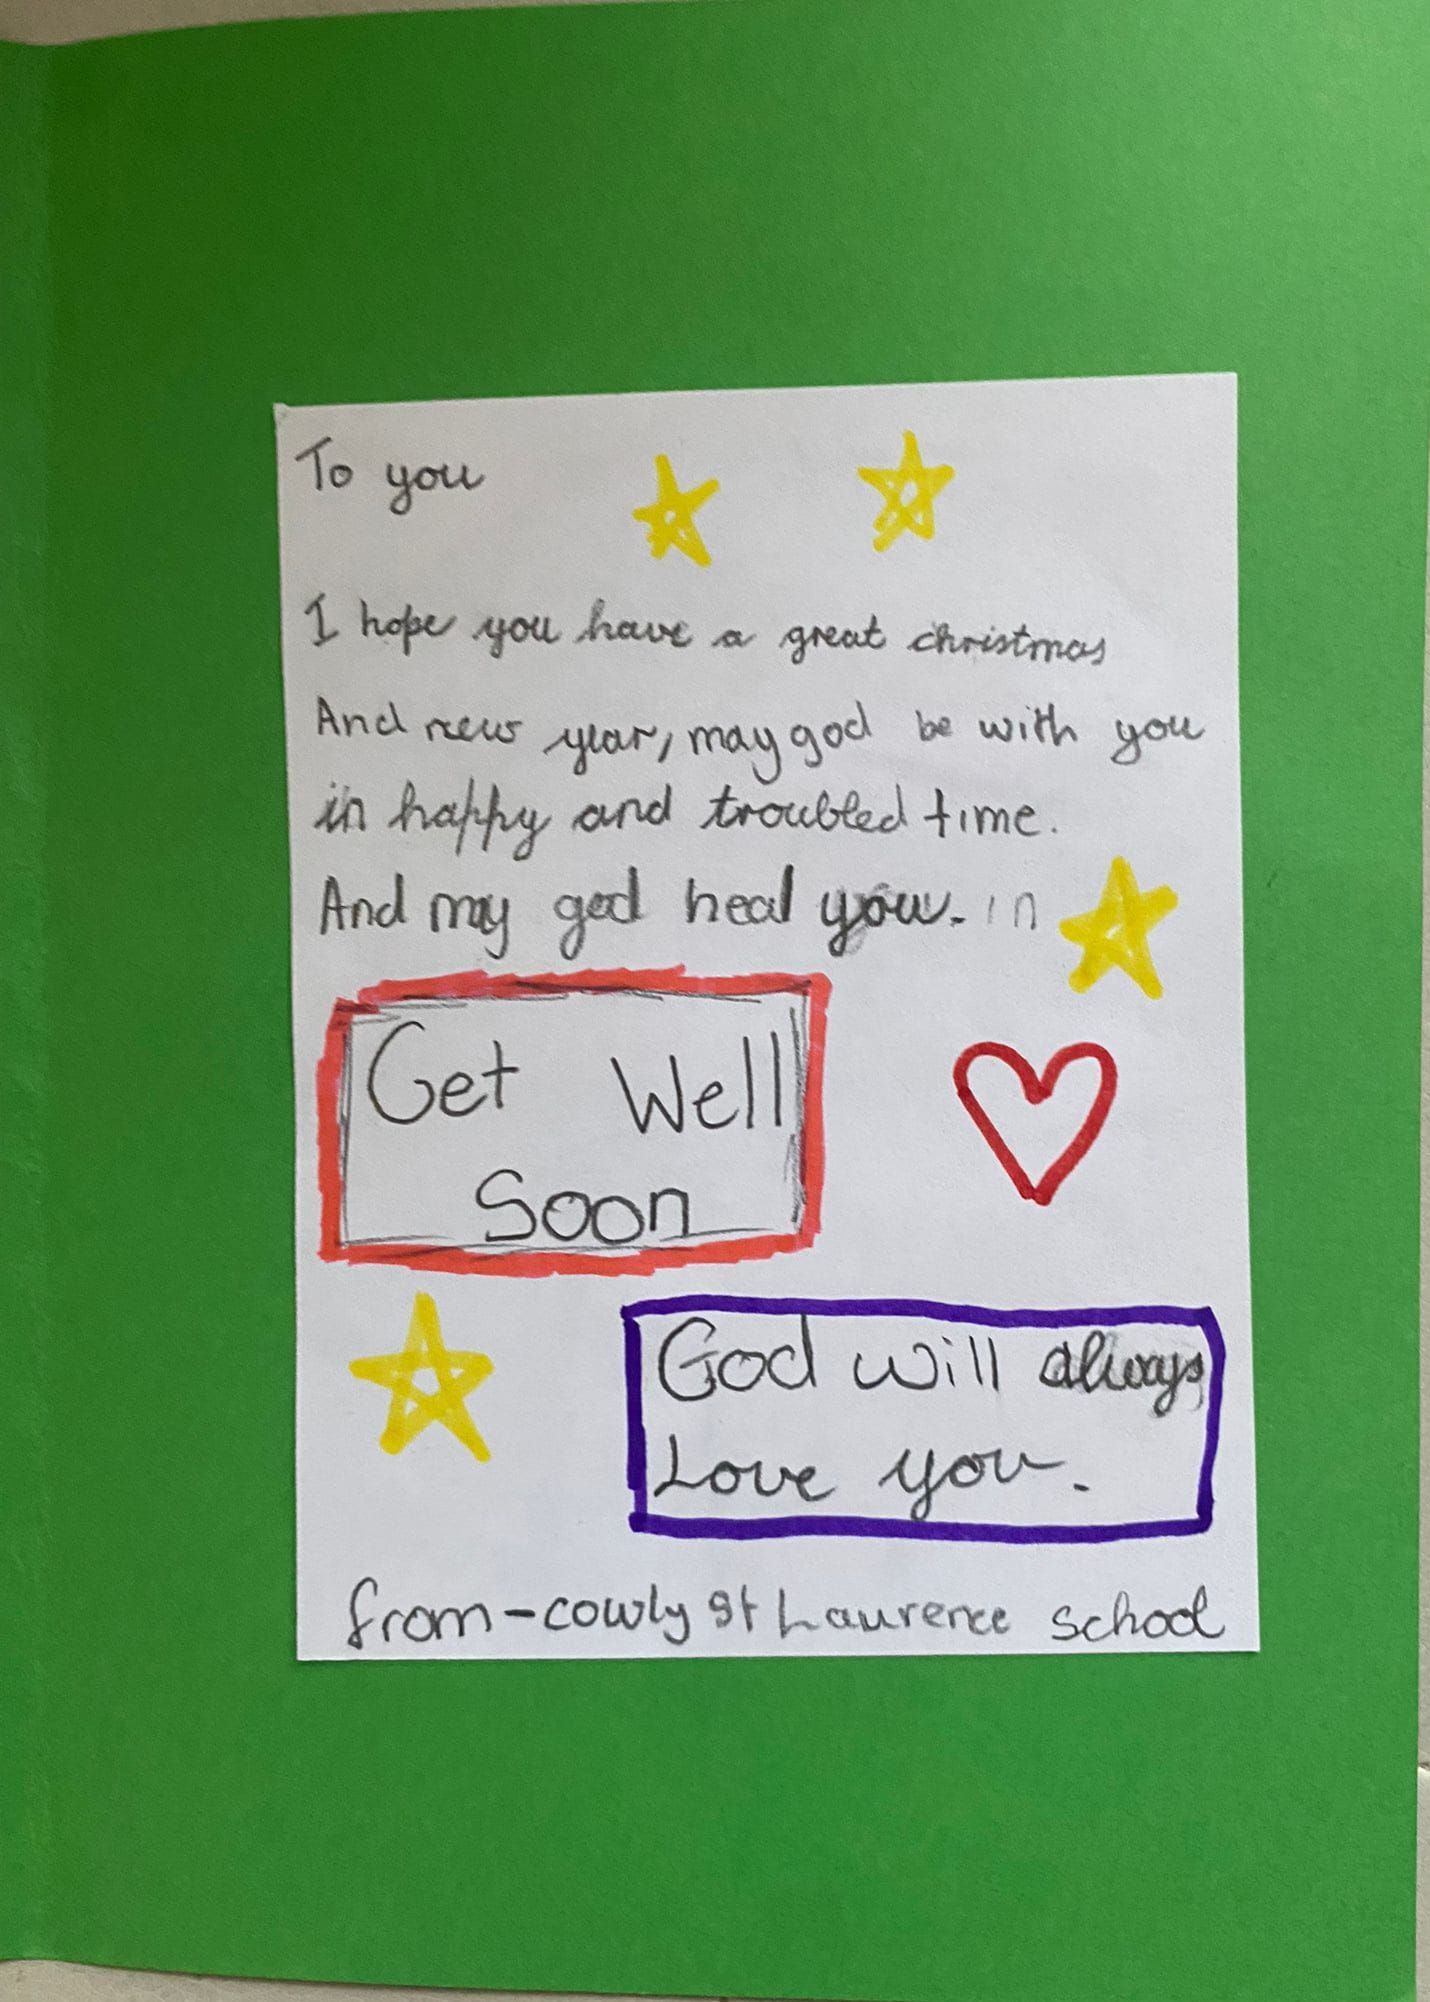 To you
I hope you have a great christmas
And new year, may god be with you
in happy and troubled time.
And may god heal you. in
Get Well
Soon
God will always
Love you.
from-cowly st Laurence school